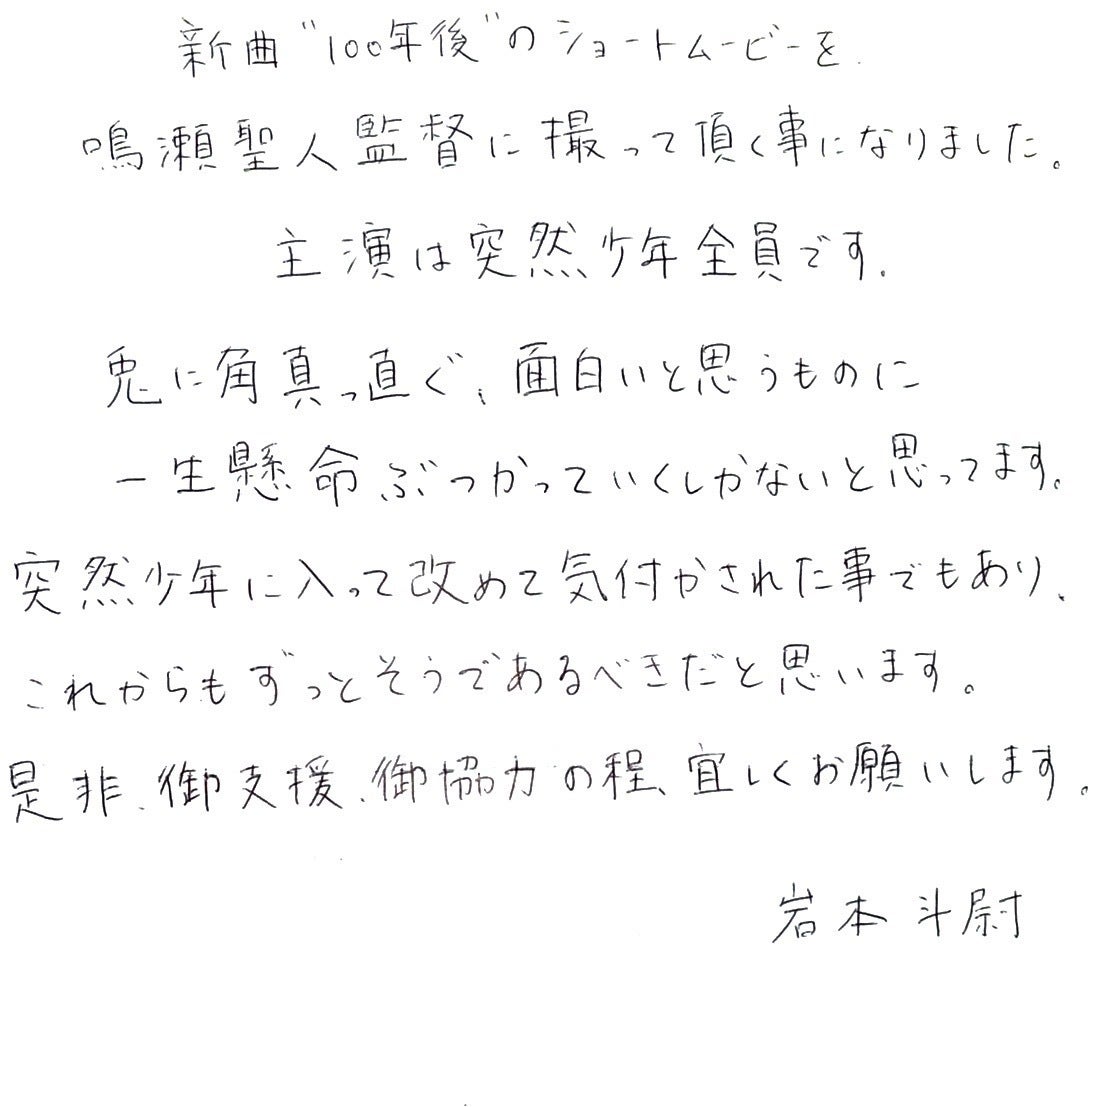 新曲"100年後"のショートムービーを
鳴瀬聖人監督に撮って頂く事になりました。
主演は突然少年全員です。
兎に角真っ直ぐ、面白いと思うものに
一生懸命ぶつかっていくしかないと思ってます。
突然少年に入って改めて気付かされた事でもあり、
これからもずっとそうであるべきだと思います。
是非、御支援、御協力の程、宜しくお願いします。
岩本斗尉